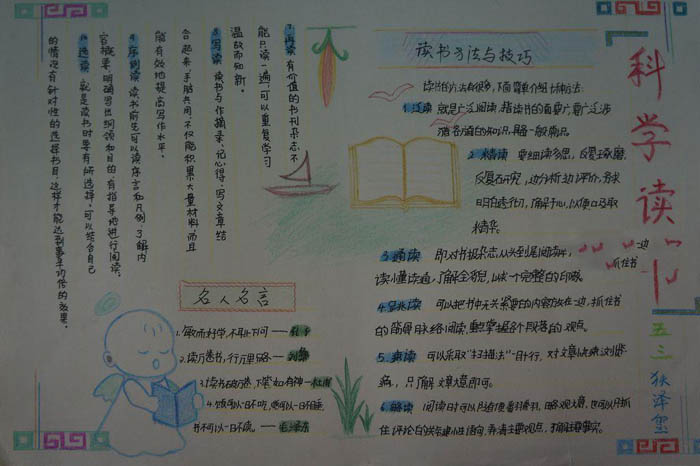 科学读书
五三
读书方法与技巧
读书的方法有很多,下面简单介绍十种方法:
1.泛读 就是广泛阅读,指读书的面要广,要广泛涉
猎各方面的知识,具备一般常识。
2.精读 要细读多思,反复琢磨,
反复研究,边分析边评价,务求
明白透彻,了解于心,以便吸取
精华。
3.通读 即对书报杂志从头到尾阅读,
读懂读通,了解全貌,以求一个完整的印象。
4.跳读 可以把书中无关紧要的内容放在一边,抓住书
的筋骨脉络阅读,重点掌握各个段落的观点。
5.速读 可以采取“扫描法”一目十行,对文章快速浏览
一遍,只了解文章大意即可。
6.略读 阅读时可以随便翻书,略观大意,也可以只抓
住评论的关键性语句,弄清主要观点,了解主要事实。
7.再读 有价值的书刊杂志不
能只读一遍,可以重复学习
温故而知新。
8.写读 读书与作摘录、记心得、写文章结
合起来,手脑共用,不仅能积累大量材料,而且
能有效地提高写作水平。
9.序例读 读书前先可以读序言和凡例,了解内
容概要,明确写书纲领和目的,有指导地进行阅读。
10.选读 就是读书时要有所选择,可以结合自己
的情况有针对性的选择书目,这样才能达到事半功倍的效果。
名人名言
1.敏而好学,不耻下问——孔子
2.读万卷书,行万里路——刘彝
3.读书破万卷,下笔如有神——杜甫
4.饭可以一日不吃,觉可以一日不睡,
书不可以一日不读。——毛泽东